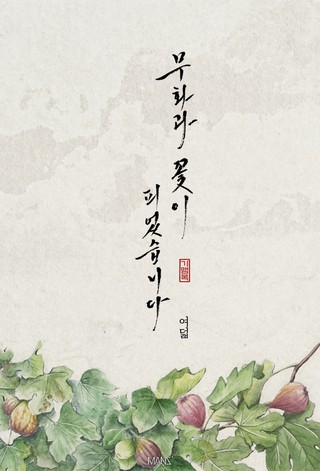 무화과 꽃이
피었습니다
여덟
MANS